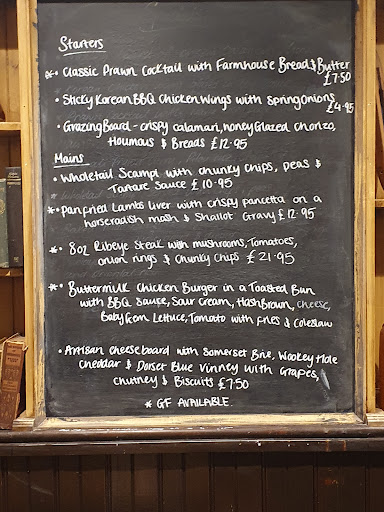 Starters
*• Classic Prawn Cocktail with Farmhouse Bread & Butter
£7.50
• Sticky Korean BBQ Chicken Wings with Spring Onions
£4.95
• Grazing Board - crispy calamari, honey Glazed Chorizo,
Houmous & Breads £12.95
Mains
• Wholetail Scampi with chunky chips, peas &
Tartare Sauce £10.95
*• Panfried Lambs liver with crispy pancetta on a
horseradish mash & Shallot Gravy £12.95
*• 8oz Ribeye Steak with mushrooms, Tomatoes,
onion rings & Chunky Chips £21.95
*• Buttermilk Chicken Burger in a Toasted Bun
with BBQ Sauce, Sour Cream, Hash Brown, Cheese,
Baby Gem Lettuce, Tomato with fries & Coleslaw
• Artisan Cheeseboard with Somerset Brie, Wookey Hole
Cheddar & Dorset Blue Vinney with Grapes,
Chutney & Biscuits £7.50
* GF AVAILABLE